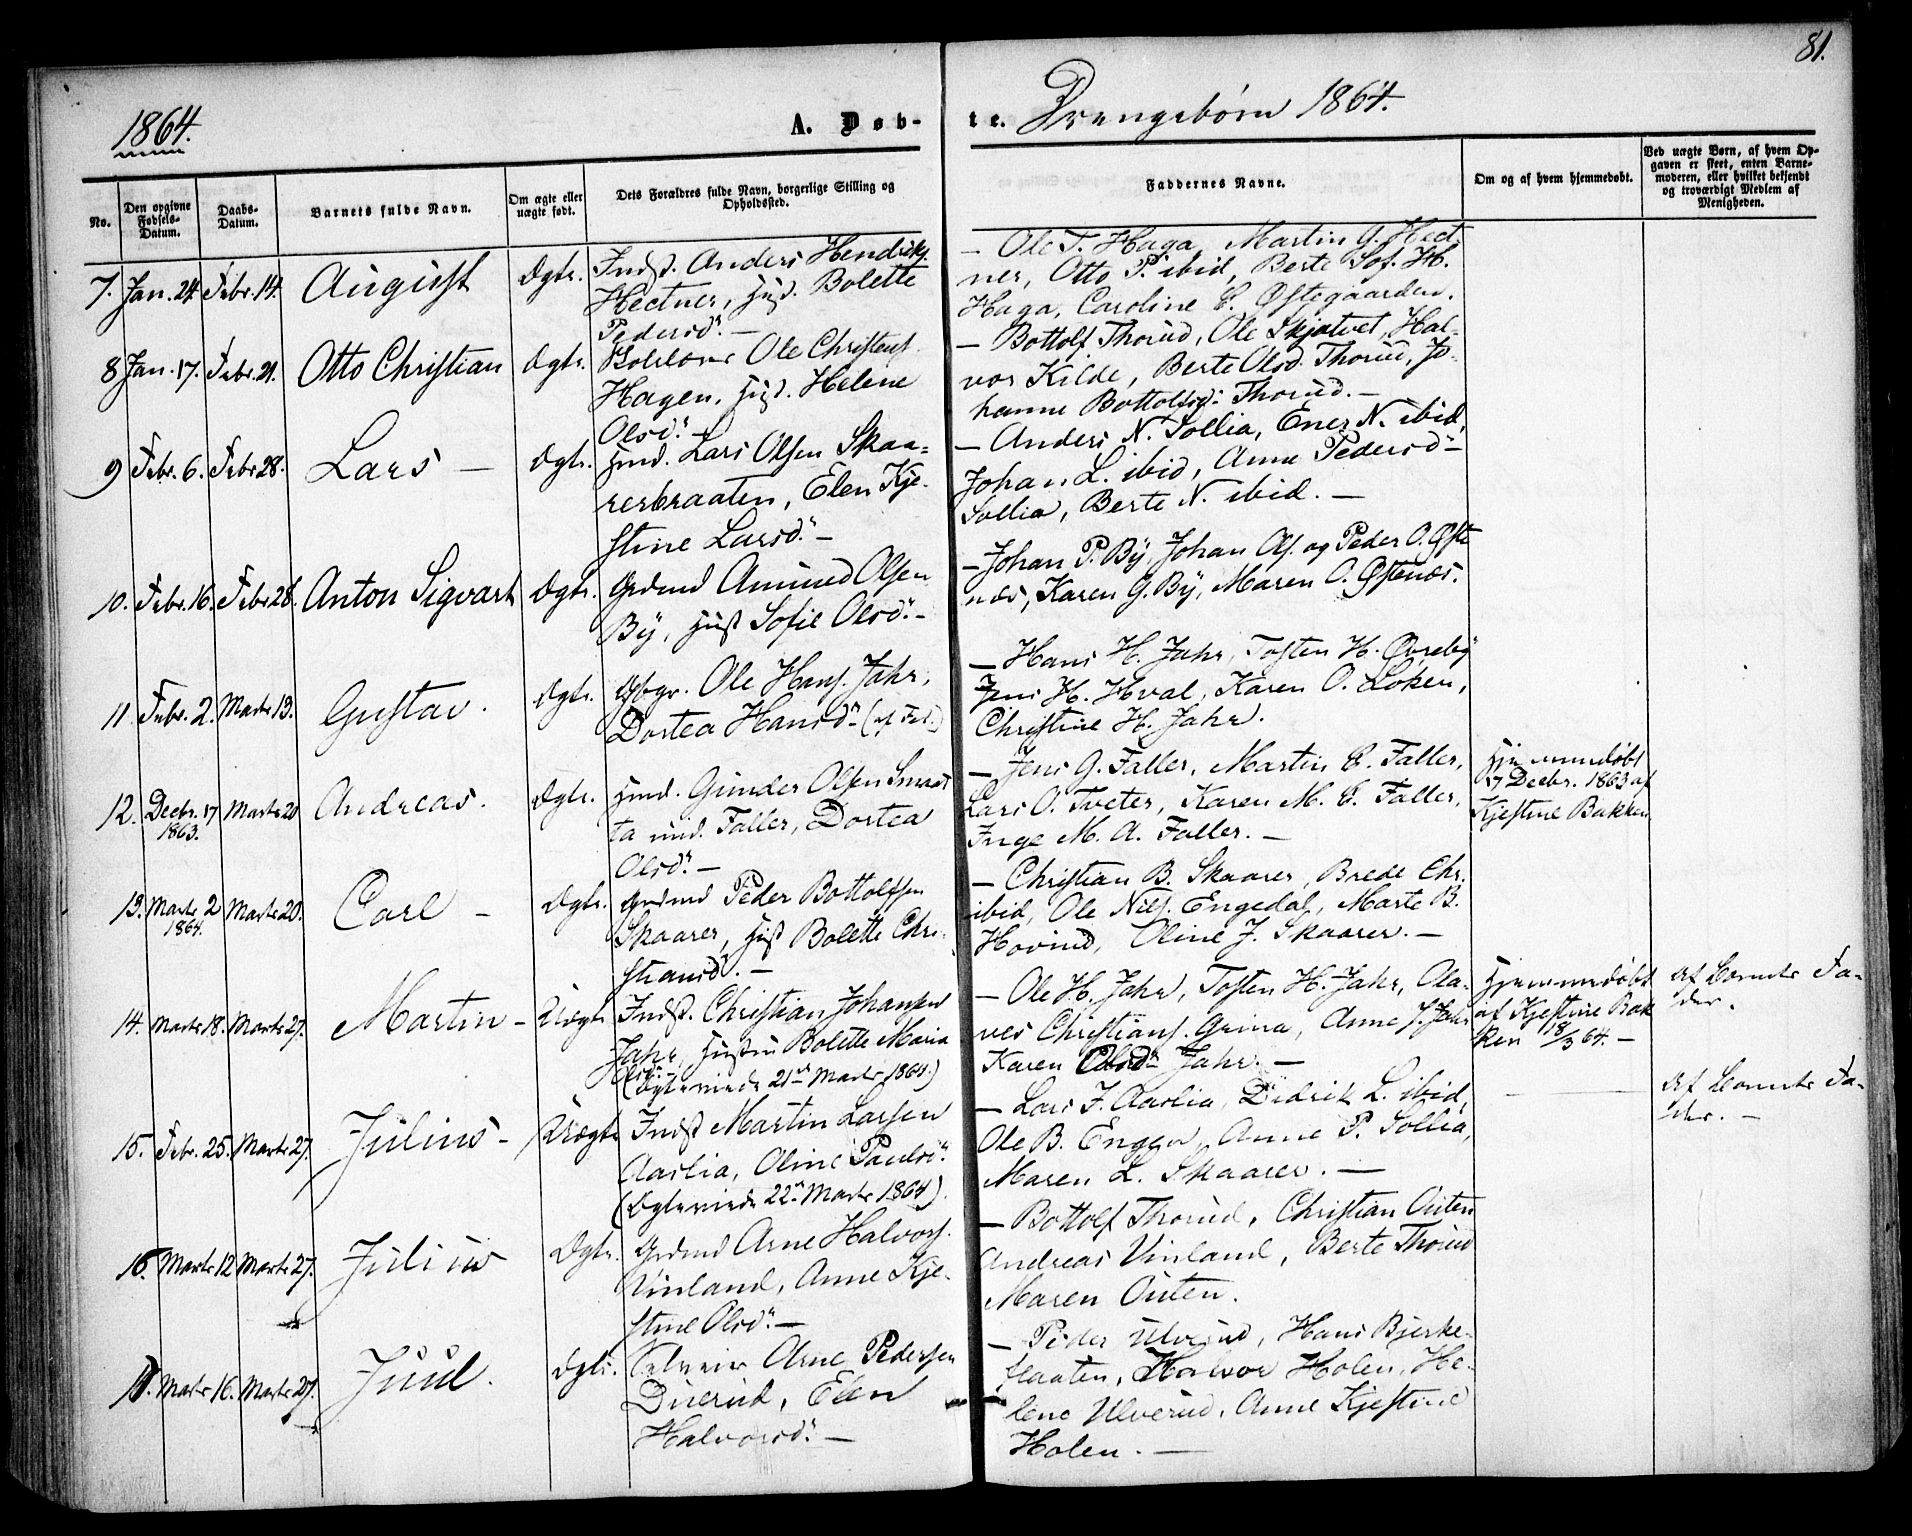 81.
1864.
A. Døb-
te. Drengebørn 1864.
No.
Den opgivne Fødsels-Datum.
Daabs-Datum.
Barnets fulde Navn.
Om ægte eller uægte født.
Dets Forældres fulde Navn, borgerlige Stilling og Opholdssted.
Faddernes Navne.
Om og af hvem hjemmedøbt.
Ved uægte Børn, af hvem Op-
gaven er skeet, enten Barne-
moderen, eller hvilket bekjendt
og troværdigt Medlem af
Menigheden.
7. Jan. 24. Febr. 14. August Ægte.
Indst. Anders Hendriks.
Hectner, Hust. Bolette
Pedersd. —
— Ole T. Haga, Martin G. Hect
ner, Otto P. ibid, Berte Sof. H.
Haga, Caroline E. Østegaarden.
8 Jan. 17. Febr. 21. Otto Christian Ægte.
Ole Christens.
Hagen, Hust. Helene
Olsd. —
— Bottolf Thorud, Ole Skjatvet, Hal-
vor Kilde, Berte Olsd. Thorud, Jo-
hanne Bottolfsd. Thorud. —
9 Febr. 6. Febr. 28. Lars — Ægte.
Husm. Lars Olsen Skaa-
rerbraaten, Elen Kje-
stine Larsd. —
— Anders N. Sollia, Ener N. ibid,
Johan L. ibid, Anne Pedersd —
Sollia, Berte N. ibid. —
10. Febr. 16. Febr. 28. Anton Sigvart Ægte.
Grdmd Amund Olsen
By, Hust Sofie Olsd. —
— Johan P. By, Johan Ols. og Peder O. Øste
næs, Karen G. By, Maren O. Østenæs.
11. Febr. 2. Marts 13. Gustav. Ægte.
Ole Hans. Jahr,
Dortea Hansd.
— Hans H. Jahr, Tosten H. Øvreby
Jens H. Hval, Karen O. Løken,
Christine H. Jahr.
12. Decbr. 17 1863. Marts 20 Andreas. Ægte.
Husm. Gunder Olsen Smaas
ta und. Faller, Dortea
Olsd. —
— Jens G. Faller, Martin E. Faller,
Lars O. Tveter, Karen M. E. Faller,
Inge M. A. Faller. —
Hjemmedøbt
17 Decbr. 1863 af
Kjestine Bakken
13. Marts 2 1864. Marts 20. Carl — Ægte.
Grdmd Peder Bottolfsen
Skaarer, Hust Bolette Chri-
stiansd. —
— Christian B. Skaarer, Brede Chr.
ibid, Ole Nils. Engedal, Marte B.
Hovind, Oline J. Skaarer. —
14. Marts 18. Marts 27. Martin — Uægte
Indst. Christian Johansen
Jahr, Hustru Bolette Maria
Olsd. (Ægteviede 21de Marts 1864)
— Ole H. Jahr, Tosten H. Jahr, Ola-
ves Christians. Grina, Anne J. Jahr
Karen Olsd. Jahr. —
Hjemmedøbt
af Kjestine Bak
ken 18/3 64. —
Af Barnets Fa-
der.
15. Febr. 25. Marts 27. Julius — Uægte
Indst Martin Larsen
Aaslia, Oline Paulsd.
(Ægteviede 22de Marts 1864).
— Lars F. Aaslia, Didrik L. ibid,
Ole B. Engen, Anne P. Sollia,
Maren L. Skaarer. —
Af Barnets Fa-
der. —
16. Marts 12 Marts 27. Julius Ægte.
Grdmd Arne Halvors.
Vinland, Anne Kje-
stine Olsd. —
— Bottolf Thorud, Christian Outen
Andreas Vinland, Berte Thorud
Maren Outen.
17. Marts 16. Marts 27. Juul. Ægte.
Selveier Arne Pedersen
Duerud, Elen
Halvorsd. —
— Peder Ulverud, Hans Bjerke-
flaaten, Halvor Holen, He-
lene Ulverud, Anne Kjestine
Holen. —